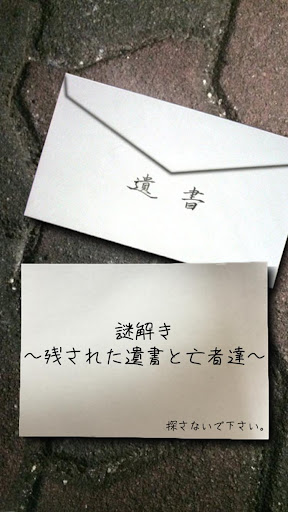 遺書
謎解き
～残された遺書と亡者達～
探さないで下さい。